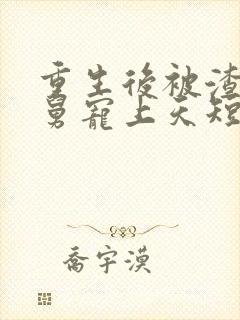 重生後被渣
舅寵上天短
喬宇漠